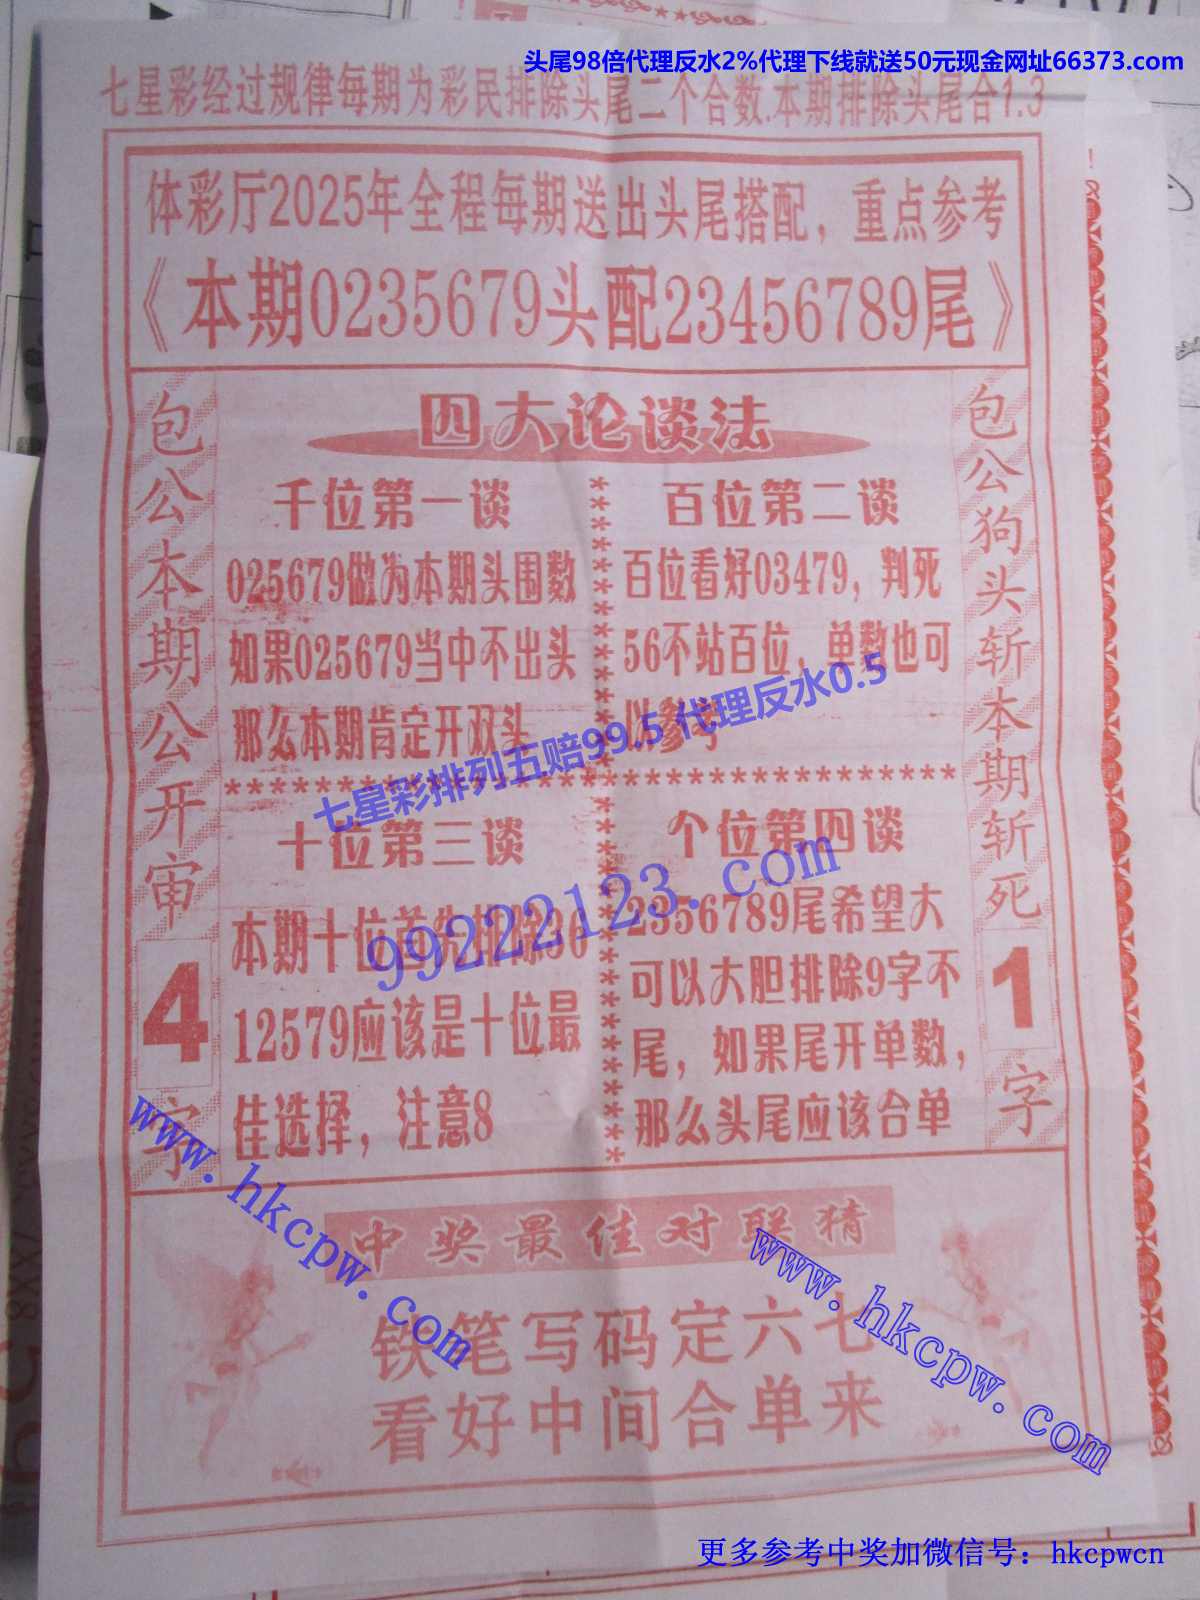 头尾98倍代理反水2%代理下线就送50元现金网址66373.com
七星彩经过规律每期为彩民排除头尾二个合数.本期排除头尾合1.3
体彩厅2025年全程每期送出头尾搭配，重点参考
《本期0235679头配23456789尾》
包公本期公开审4字
四大论谈法
千位第一谈
025679做为本期头围数
如果025679当中不出头
那么本期肯定开双头
百位第二谈
百位看好03479，判死
56不站百位，单数也可
以参考
十位第三谈
本期十位首先排除36
12579应该是十位最
佳选择，注意8
个位第四谈
2356789尾希望大
可以大胆排除9字不
尾，如果尾开单数，
那么头尾应该合单
包公狗头斩本期斩死1字
七星彩排列五赔99.5 代理反水0.5
99222123.com
中奖最佳对联猜
铁笔写码定六七
看好中间合单来
www.hkcpw.com
www.hkcpw.com
更多参考中奖加微信号：hkcpwcn